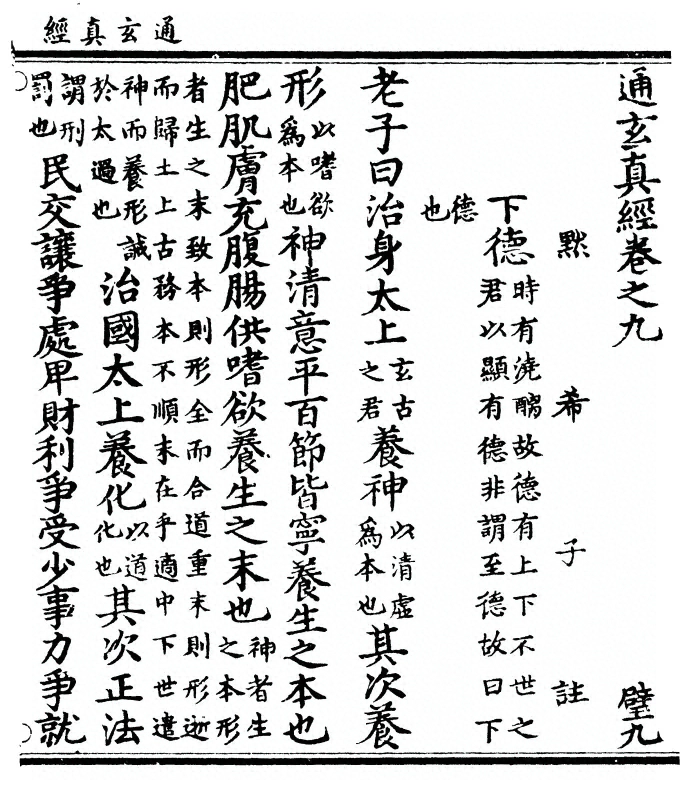 通玄真經
通玄真經卷之九　璧九
默希子註
下德時有澆醨故德有上下不世之
君以顯有德非謂至德故曰下
德
也
老子曰治身太上玄古
之君養神以清虛
爲本也其次養
形以嗜欲
爲本也神清意平百節皆寧養生之本也
肥肌膚充腹腸供嗜欲養生之末也神者生
之本形
者生之末致本則形全而合道重末則形逝
而歸土上古務本不順末在乎適中下世遺
神而養形誠
於太過也治國太上養化以道
化也其次正法
謂刑
罰也民交讓爭處卑財利爭受少事力爭就